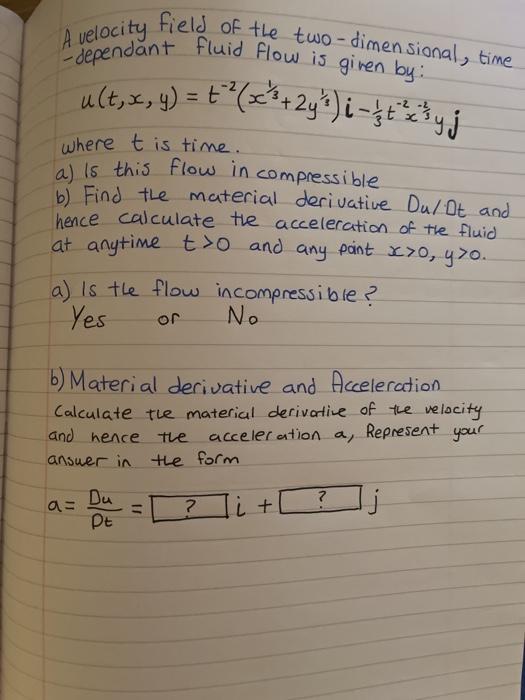 A velocity field of the two-dimensional, time
-dependant fluid flow is given by:
u(t,x,y) = t⁻²(x^⅓+2y^⅓)i-⅓t⁻²x^-⅔yj
where t is time.
a) Is this flow incompressible
b) Find the material derivative Du/Dt and
hence calculate the acceleration of the fluid
at anytime t>0 and any point x>0, y>0.
a) Is the flow incompressible?
Yes or No
b) Material derivative and Acceleration
Calculate the material derivative of the velocity
and hence the acceleration a, Represent your
answer in the form
a= Du/Dt = [ ? ]i + [ ? ]j